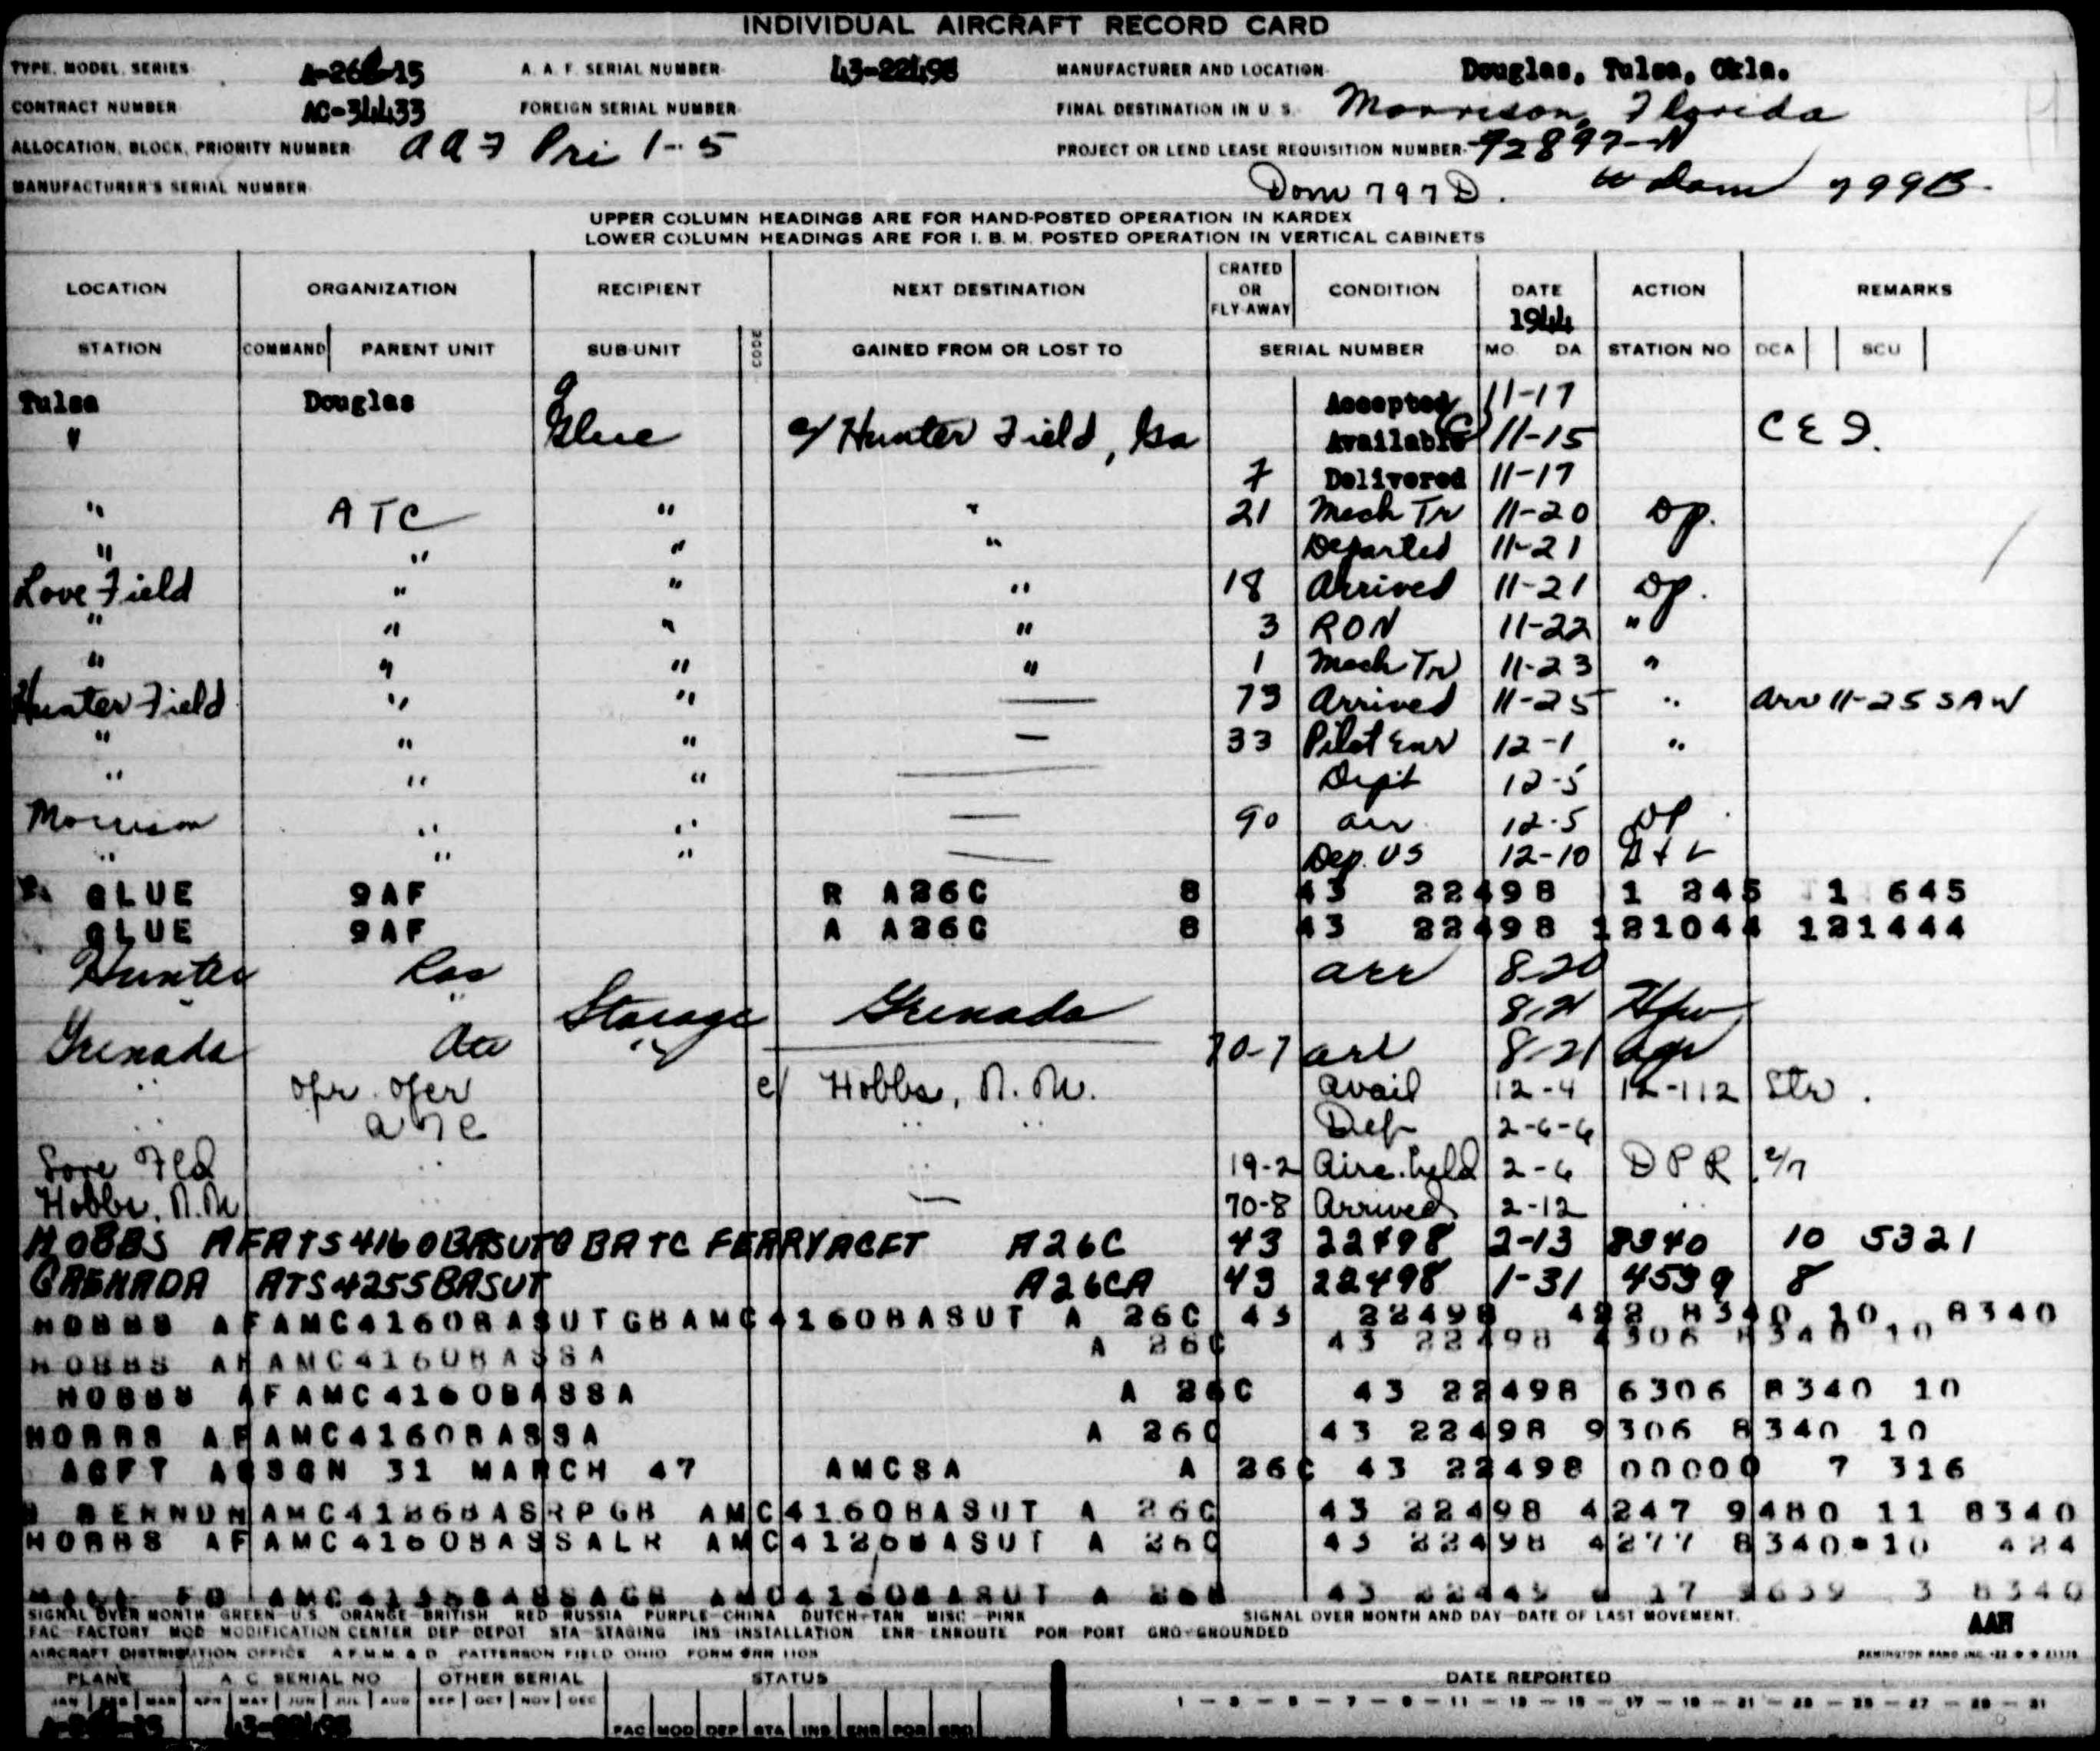 INDIVIDUAL AIRCRAFT RECORD CARD
TYPE, MODEL, SERIES A-26C-15 A. A. F. SERIAL NUMBER 43-22498 MANUFACTURER AND LOCATION Douglas, Tulsa, Okla.
CONTRACT NUMBER AC-34433 FOREIGN SERIAL NUMBER FINAL DESTINATION IN U S Morrison, Florida
ALLOCATION, BLOCK, PRIORITY NUMBER AAF Pri 1-5 PROJECT OR LEND LEASE REQUISITION NUMBER 92897-N
MANUFACTURER'S SERIAL NUMBER Dom 797D. Dom 799B-
UPPER COLUMN HEADINGS ARE FOR HAND-POSTED OPERATION IN KARDEX
LOWER COLUMN HEADINGS ARE FOR I. B. M. POSTED OPERATION IN VERTICAL CABINETS
LOCATION ORGANIZATION RECIPIENT NEXT DESTINATION CRATED OR FLY-AWAY CONDITION DATE 1944 ACTION REMARKS
STATION COMMAND PARENT UNIT SUB-UNIT CODE GAINED FROM OR LOST TO SERIAL NUMBER MO. DA STATION NO DCA SCU
Tulsa Douglas Accepted 11-17
" Glue e/ Hunter Field, Ga Available 11-15 C E I.
7 Delivered 11-17
" ATC " " 21 Mech Tr 11-20 Dp.
" " " " Departed 11-21
Love Field " " " 18 Arrived 11-21 Dp.
" " " " 3 RON 11-22 "
" " " " 1 Mech Tr 11-23 "
Hunter Field " " — 73 Arrived 11-25 " Arr 11-25 SAW
" " " — 33 Pilot Enr 12-1 "
" " " — Dept 12-5
Morrison " " — 90 arr 12-5 DP
" " " — Dep. US 12-10
GLUE 9AF R A26C 8 43 22498 1 245 1 645
GLUE 9AF A A26C 8 43 22498 121044 121444
Hunter arr 8-20
" Storage Grenada 8-21
Grenada " 70-7 arr 8-21
" opr. oper e/ Hobbs, N. M. avail 12-4 12-112 Str.
" ATC " " Dep 2-6-6
Love Fld " " 19-2 Airc. held 2-6 D P R. 2/7
Hobbs, N. M " — 70-8 Arrived 2-12 "
HOBBS AFATS4160BASUTGBATC FERRYACFT A26C 43 22498 2-13 8340 10 5321
GRENADA ATS4255BASUT A26CA 43 22498 1-31 4539 8
HOBBS AFAMC4160BASUTGBAMC4160BASUT A 26C 43 22498 422 8340 10 8340
HOBBS AFAMC4160BASSA A 26C 43 22498 4306 8340 10
HOBBS AFAMC4160BASSA A 26C 43 22498 6306 8340 10
HOBBS AFAMC4160BASSA A 26C 43 22498 9306 8340 10
ACFT ASSGN 31 MARCH 47 AMCSA A 26C 43 22498 00000 7 316
AMC4186BASRPGB AMC4160BASUT A 26C 43 22498 4247 9480 11 8340
HOBBS AFAMC4160BASSALR AMC4126BASUT A 26C 43 22498 4277 8340 10 424
17 3 8340
SIGNAL OVER MONTH GREEN-U.S. ORANGE-BRITISH RED-RUSSIA PURPLE-CHINA DUTCH-TAN MISC-PINK SIGNAL OVER MONTH AND DAY-DATE OF LAST MOVEMENT.
FAC-FACTORY MOD MODIFICATION CENTER DEP-DEPOT STA-STAGING INS-INSTALLATION ENR-ENROUTE POR-PORT GRO-GROUNDED AAH
AIRCRAFT DISTRIBUTION OFFICE A.F.M.M. & D PATTERSON FIELD OHIO FORM REMINGTON RAND INC.
PLANE A C SERIAL NO OTHER SERIAL STATUS DATE REPORTED
JAN FEB MAR APR MAY JUN JUL AUG SEP OCT NOV DEC 1 - 3 - 5 - 7 - 9 - 11 - 13 - 15 - 17 - 19 - 21 - 23 - 25 - 27 - 29 - 31
FAC MOD DEP STA INS ENR POR GRO